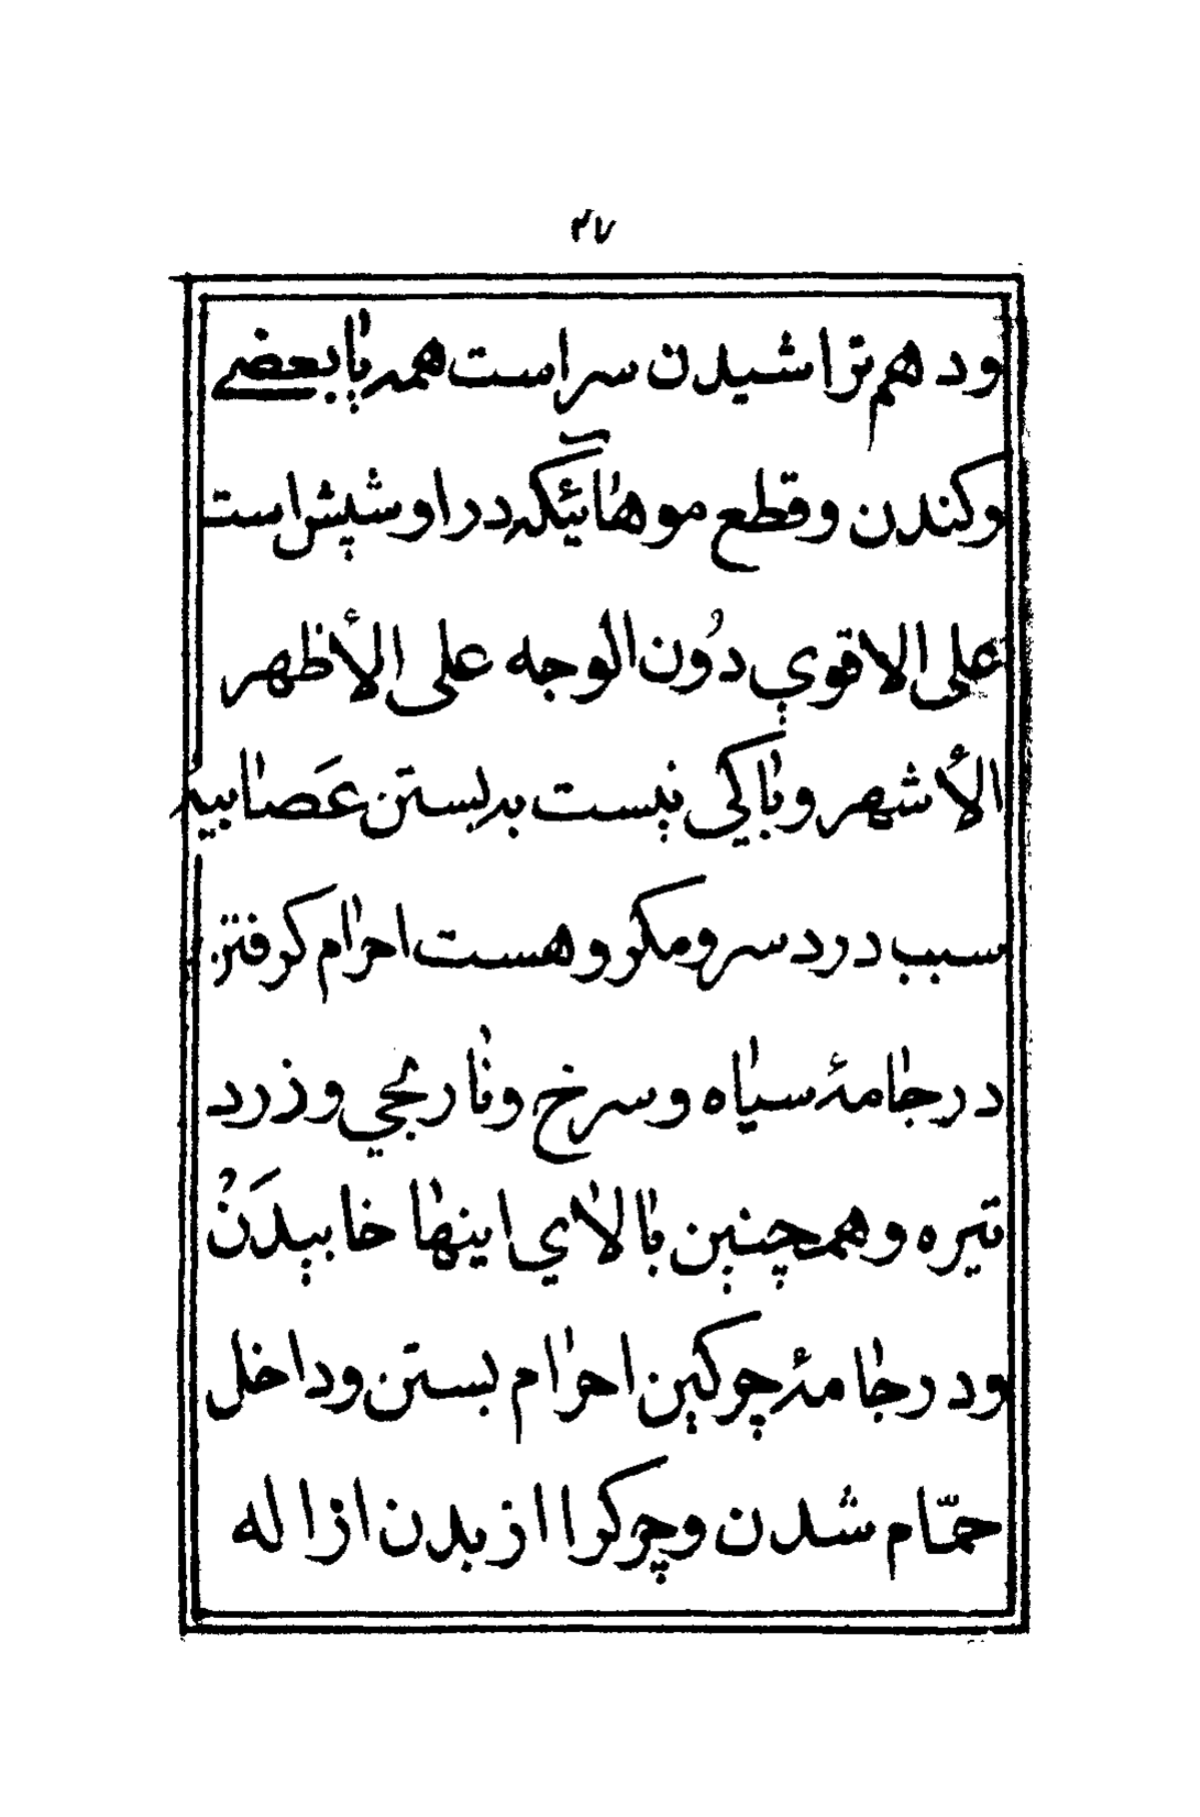 ٢٧
ود هم تراشیدن سراست همه یا بعضے
وکندن وقطع موهائیکه دراوشپش است
علی الاقوي دُون الوجه علی الأظهر
الأشهر وباکی نیست بد بستن عَصابیه
سبب درد سر ومکرو هست احرام کرفتن
درجامهٔ سیاه وسرخ ونارنجي وزرد
تیره وهمچنین بالاي اینها خابیدَنْ
ودرجامهٔ چرکین احرام بستن وداخل
حمّام شدن وچرکرا از بدن ازاله